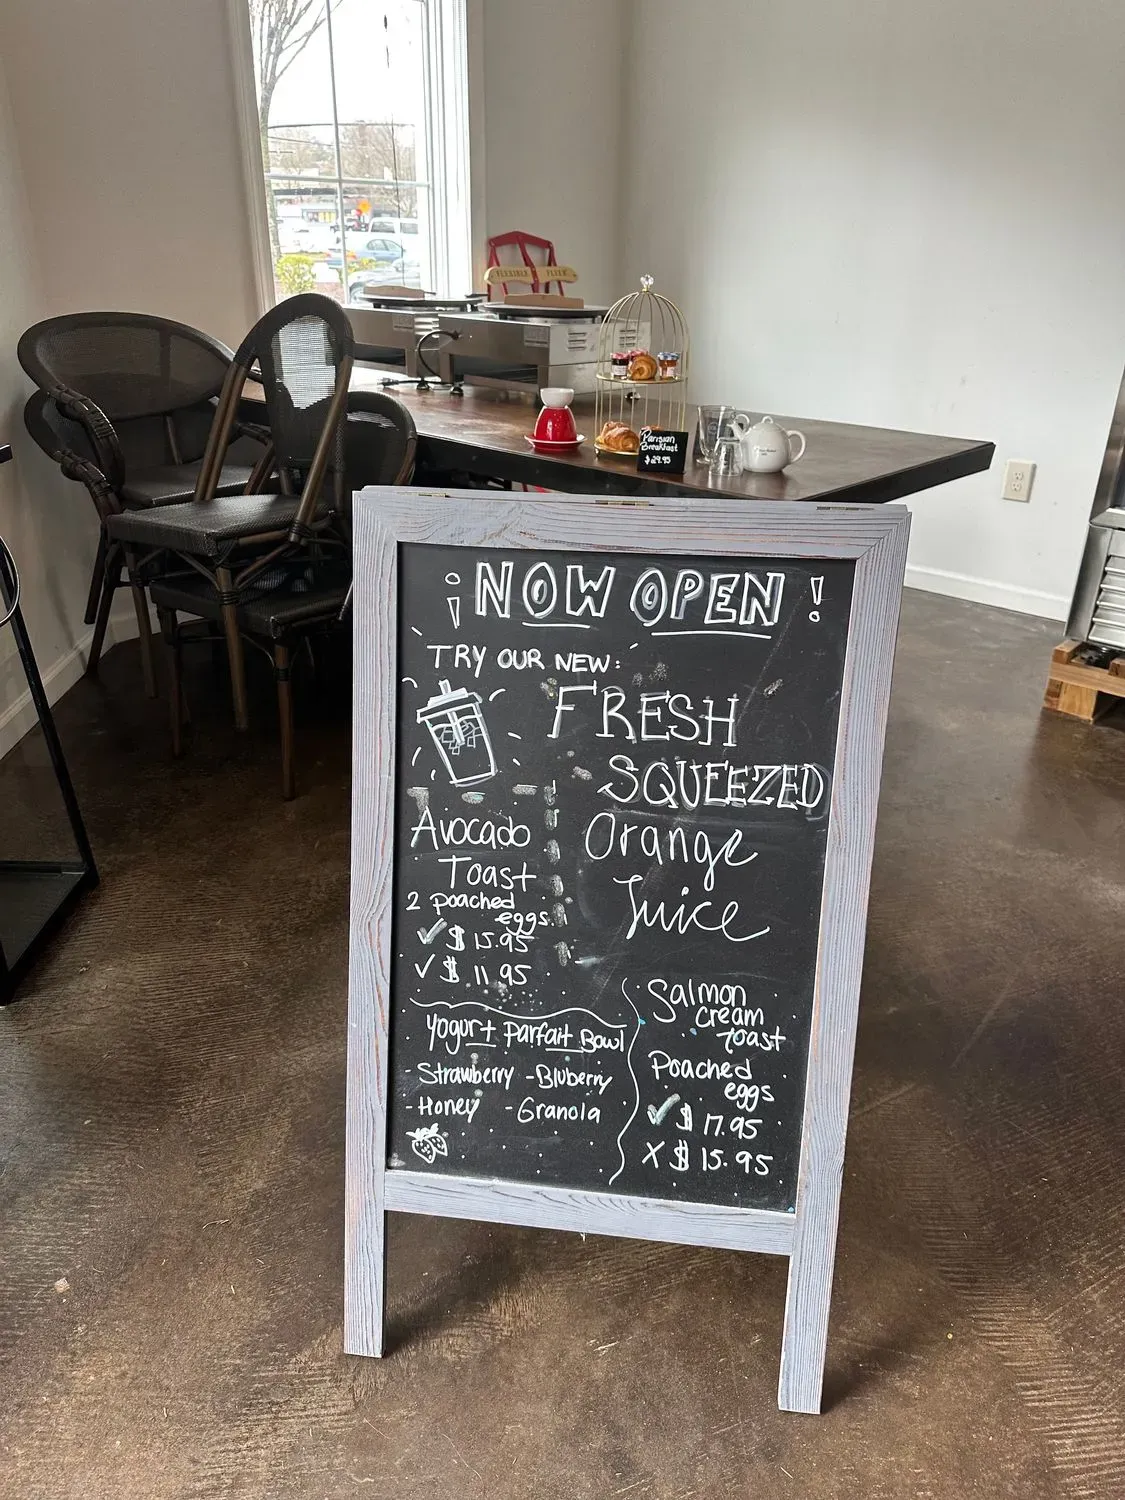 FLEXIBLE FLYER
Parisian
Breakfast
$29.95
¡NOW OPEN!
TRY OUR NEW:
FRESH
SQUEEZED
Orange
Juice
Avocado
Toast
2 poached
eggs
✓ $15.95
✓ $11.95
Yogurt Parfait Bowl
- Strawberry - Bluberry
- Honey - Granola
Salmon
cream
toast
Poached
eggs
✓ $17.95
X $15.95